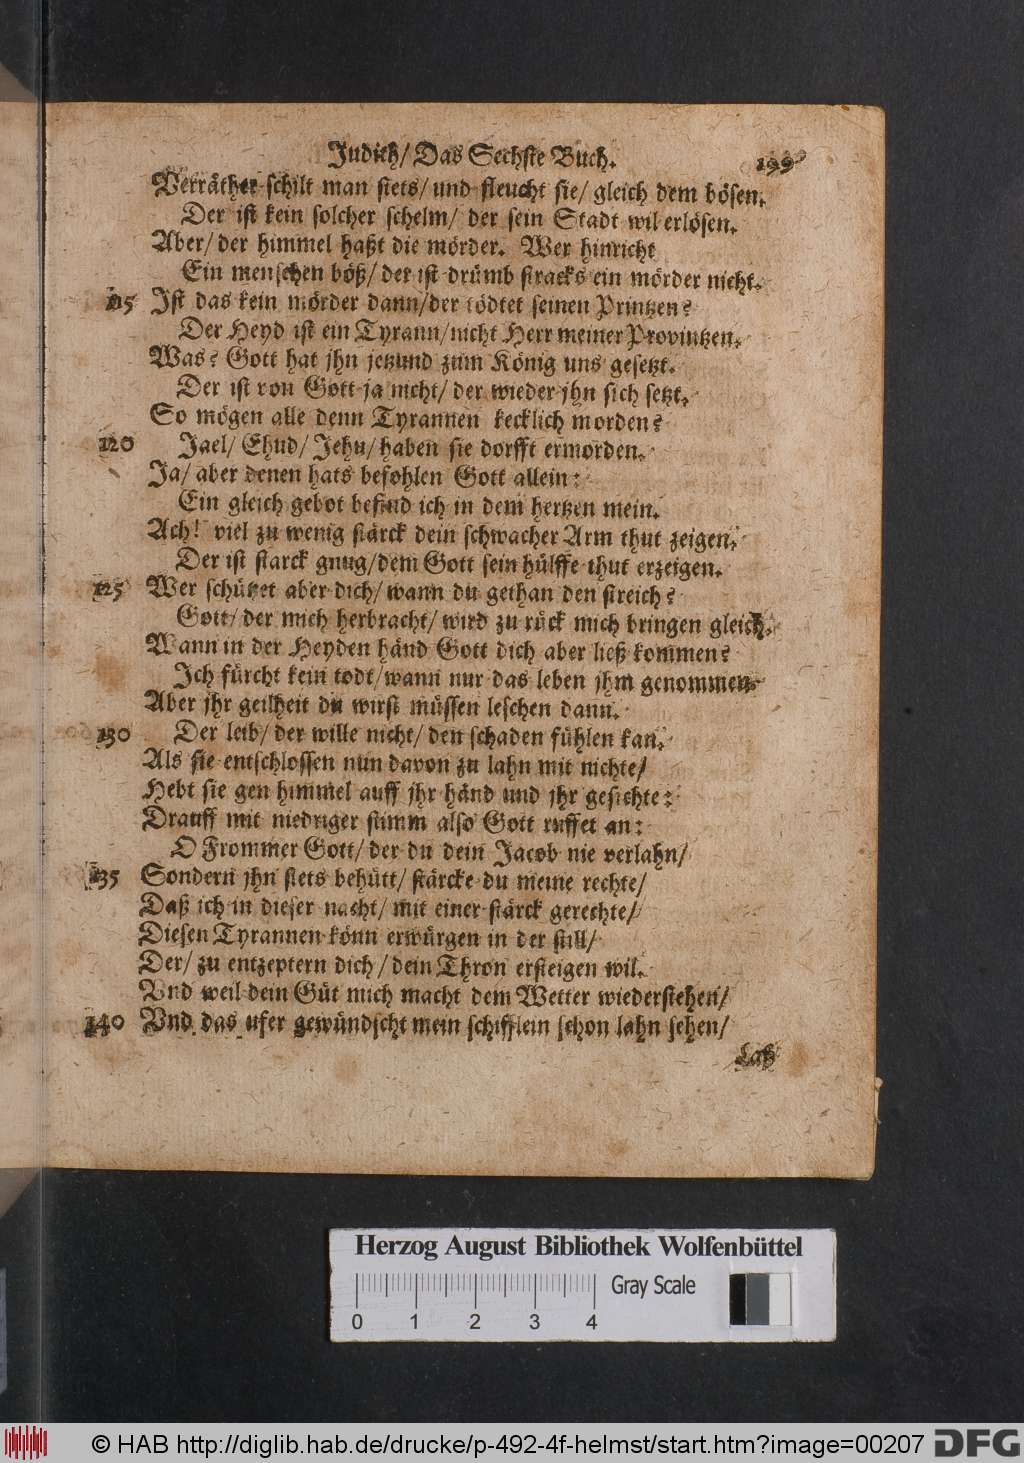 Judith/ Das Sechste Buch. 199
Verräther schilt man stets/ und fleucht sie/ gleich dem bösen.
Der ist kein solcher schelm/ der sein Stadt wil erlösen.
Aber/ der himmel haßt die mörder. Wer hinricht
Ein menschen böß/ der ist drümb stracks ein mörder nicht.
115 Ist das kein mörder dann/ der tödtet seinen Printzen?
Der Heyd ist ein Tyrann/ nicht Herr meiner Provintzen.
Was? Gott hat jhn jetzund zum König uns gesetzt.
Der ist von Gott ja nicht/ der wieder jhn sich setzt.
So mögen alle denn Tyrannen kecklich morden?
120 Jael/ Ehud/ Jehu/ haben sie dorfft ermorden.
Ja/ aber denen hats befohlen Gott allein:
Ein gleich gebot befind ich in dem hertzen mein.
Ach! viel zu wenig stärck dein schwacher Arm thut zeigen.
Der ist starck gnug/ dem Gott sein hülffe thut erzeigen.
125 Wer schützet aber dich/ wann du gethan den streich?
Gott/ der mich herbracht/ wird zu rück mich bringen gleich.
Wann in der Heyden händ Gott dich aber ließ kommen?
Ich fürcht kein todt/ wann nur das leben jhm genommen.
Aber jhr geilheit du wirst müssen leschen dann.
130 Der leib/ der wille nicht/ den schaden fühlen kan.
Als sie entschlossen nun davon zu lahn mit nichte/
Hebt sie gen himmel auff jhr händ und jhr gesichte:
Drauff mit niedriger stimm also Gott ruffet an:
O Frommer Gott/ der du dein Jacob nie verlahn/
135 Sondern jhn stets behütt/ stärcke du meine rechte/
Daß ich in dieser nacht/ mit einer stärck gerechte/
Diesen Tyrannen könn erwürgen in der still/
Der/ zu entzeptern dich/ dein Thron ersteigen wil.
Vnd weil dein Güt mich macht dem Wetter wiederstehen/
140 Vnd das ufer gewündscht mein schifflein schon lahn sehen/
Laß
Herzog August Bibliothek Wolfenbüttel
Gray Scale
0 1 2 3 4
© HAB http://diglib.hab.de/drucke/p-492-4f-helmst/start.htm?image=00207 DFG